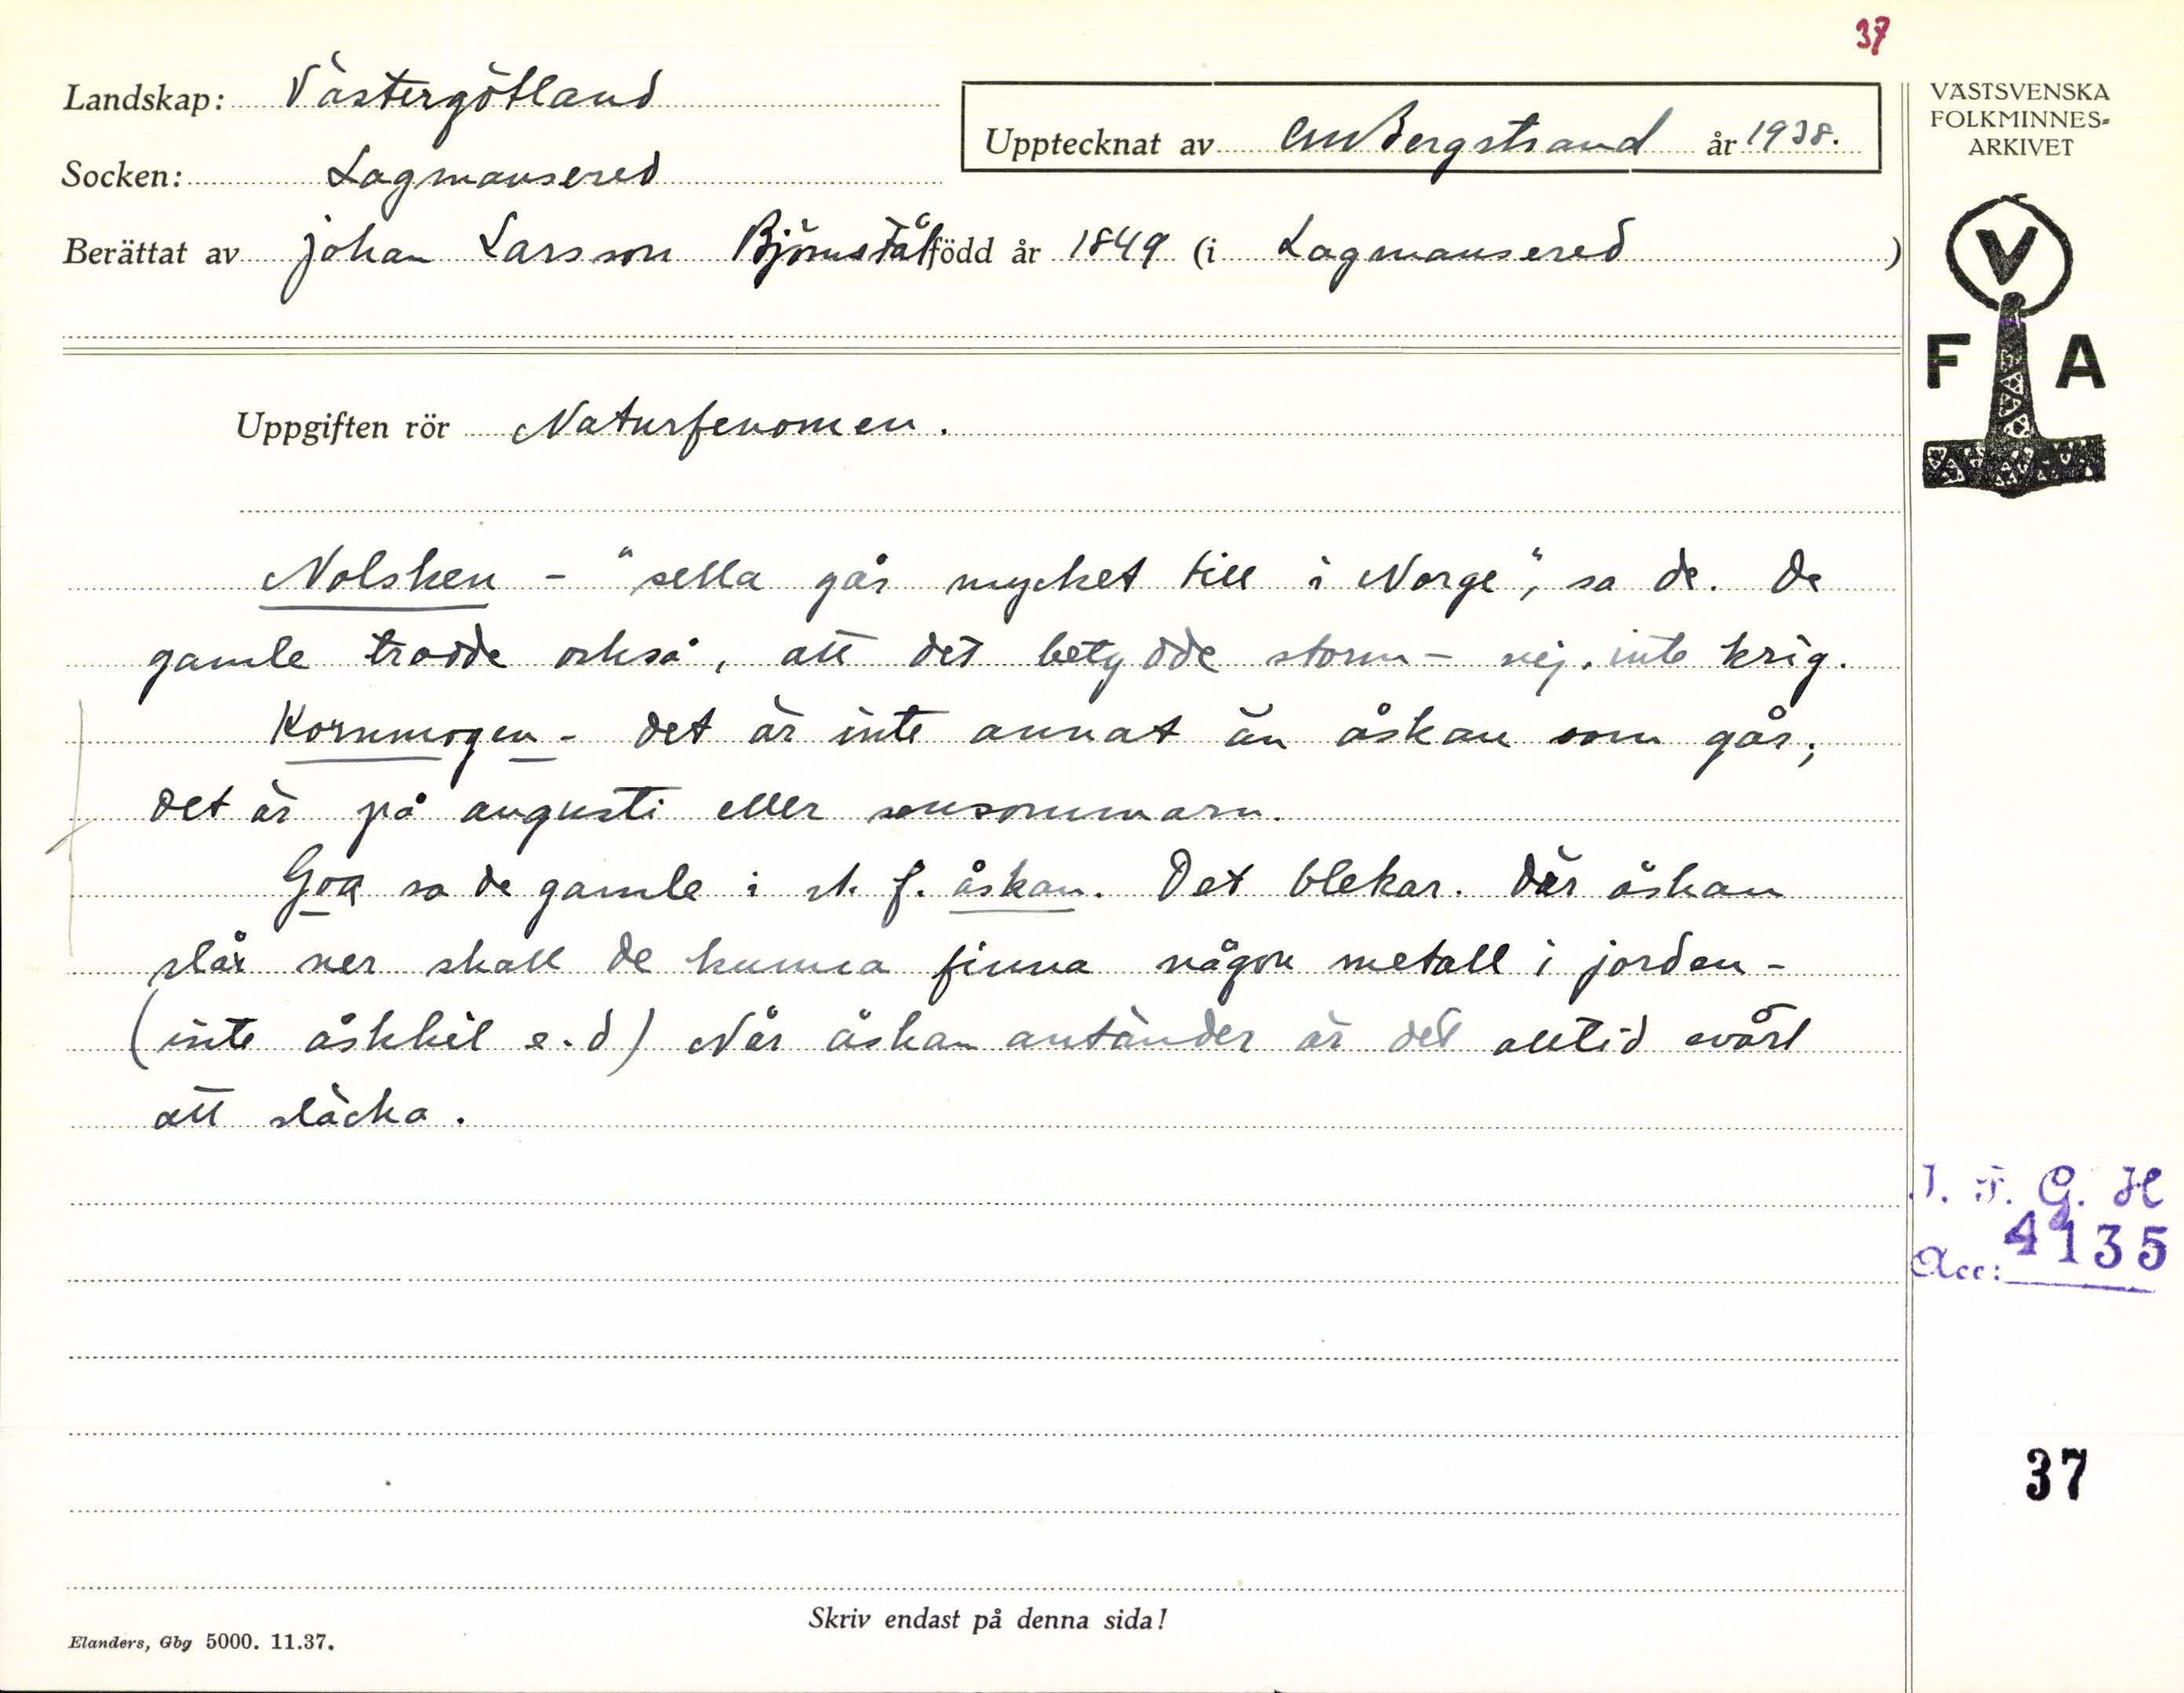 37
Landskap: Västergötland
Upptecknat av CMBergstrand år 1938.
Socken: Lagmansered
Berättat av Johan Larsson Björnstål född år 1849 (i Lagmansered)
VÄSTSVENSKA
FOLKMINNES-
ARKIVET
V
F A
Uppgiften rör Naturfenomen.
Nolsken - "sella går mycket till i Norge", sa de. De
gamle trodde också, att det betydde storm - nej, inte krig.
Kornmogen - det är inte annat än åskan som går;
det är på augusti eller sensommarn.
Goa sa de gamle i st. f. åskan. Det blekar. Där åskan
slår ner skall de kunna finna någon metall i jorden -
(inte åskkil e.d) När åskan antänder är det alltid svårt
att släcka.
I. F. G. H
Acc: 4135
37
Skriv endast på denna sida!
Elanders, Gbg 5000. 11.37.